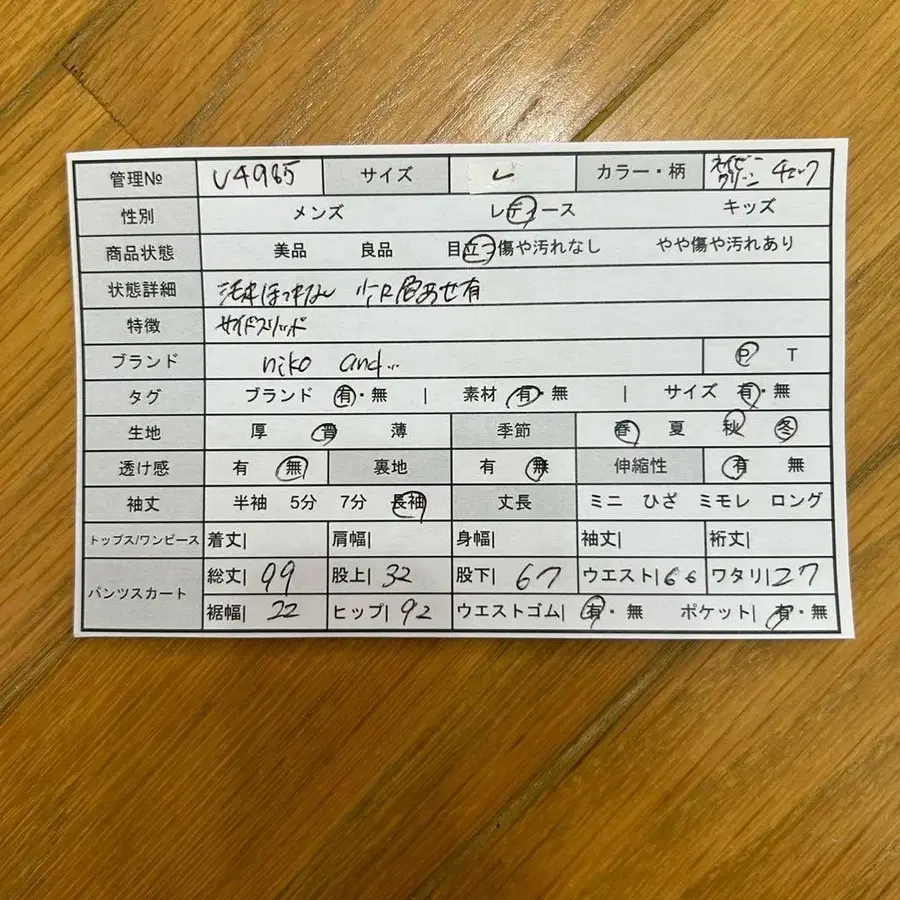 管理№ U4985 サイズ L カラー・柄 ネイビー グリーン チェック
性別 メンズ レディース キッズ
商品状態 美品 良品 目立つ傷や汚れなし やや傷や汚れあり
状態詳細 汚れほつれなし 少し色あせ有
特徴 サイドスリッド
ブランド niko and... P T
タグ ブランド 有・無 | 素材 有・無 | サイズ 有・無
生地 厚 普 薄 季節 春 夏 秋 冬
透け感 有 無 裏地 有 無 伸縮性 有 無
袖丈 半袖 5分 7分 長袖 丈長 ミニ ひざ ミモレ ロング
トップス/ワンピース 着丈| 肩幅| 身幅| 袖丈| 裄丈|
パンツスカート 総丈| 99 股上| 32 股下| 67 ウエスト| 66 ワタリ| 27
裾幅| 22 ヒップ| 92 ウエストゴム| 有・無 ポケット| 有・無